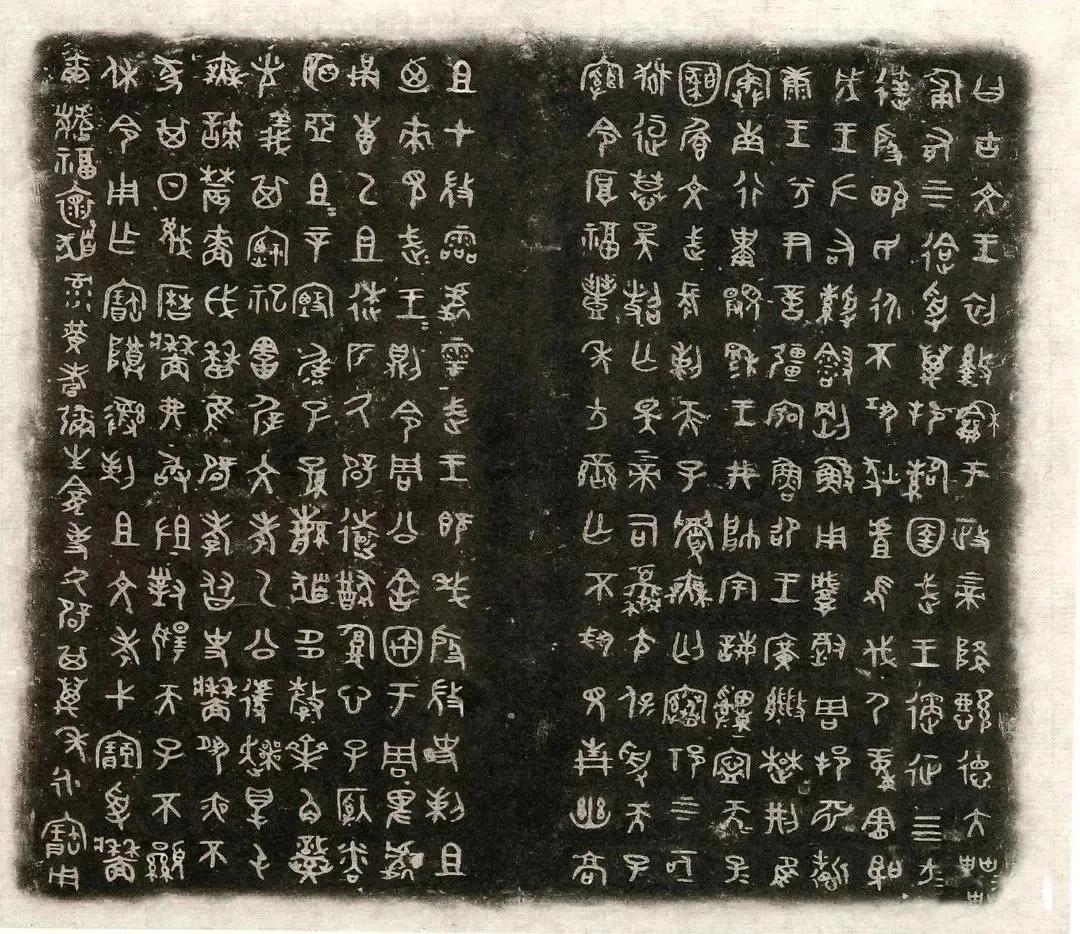 曰古文王初𢾾龢于政上帝降懿德大甹
匍有上下迨受萬邦𩁹圉武王遹征四方
達殷畯民永不巩狄虘𢼸伐尸童憲聖
成王左右綬𩁹剛鯀用肇徹周邦淵哲
康王兮尹億疆宖魯邵王廣𢾾楚荊隹
寏南行祗景穆王井帥宇誨申寧天子
圝饡文武長剌天子眉無匄䙴祁上下
亟𤞷桓慕昊照亡斁上帝司夒尢保受天子
綰令厚福豐年方蠻亡不𢦔見青幽高
且才微霝處雩武王既𢦔殷微史剌且
乃來見武王武王則令周公舍宇于周卑處
甬惠乙且逑匹氒辟遠猷腹心子納粦明
亞且且辛𡫩毓子孫繁祓多釐齊角熾
光義其禋祀害屖文考乙公遽爽得屯
無諫農嗇戉曆隹辟孝友史墻夙夜不
㒸其日蔑曆墻弗敢沮對揚天子不顯
休令用乍寶尊彝剌且文考弋𡩜受墻
爾𪓐福懷祓彔黃耇彌生龕事氒辟其萬年永寶用